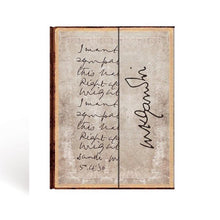 I want
sympat
this ba
Right ag
Might
I want
sympat
this ba
Right ag
Might
Sandi
5.4.30
MKGandhi